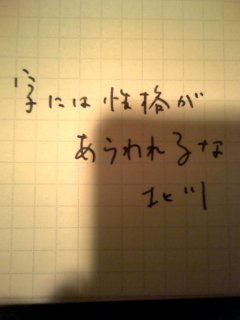 字には性格が
あらわれるな
北川